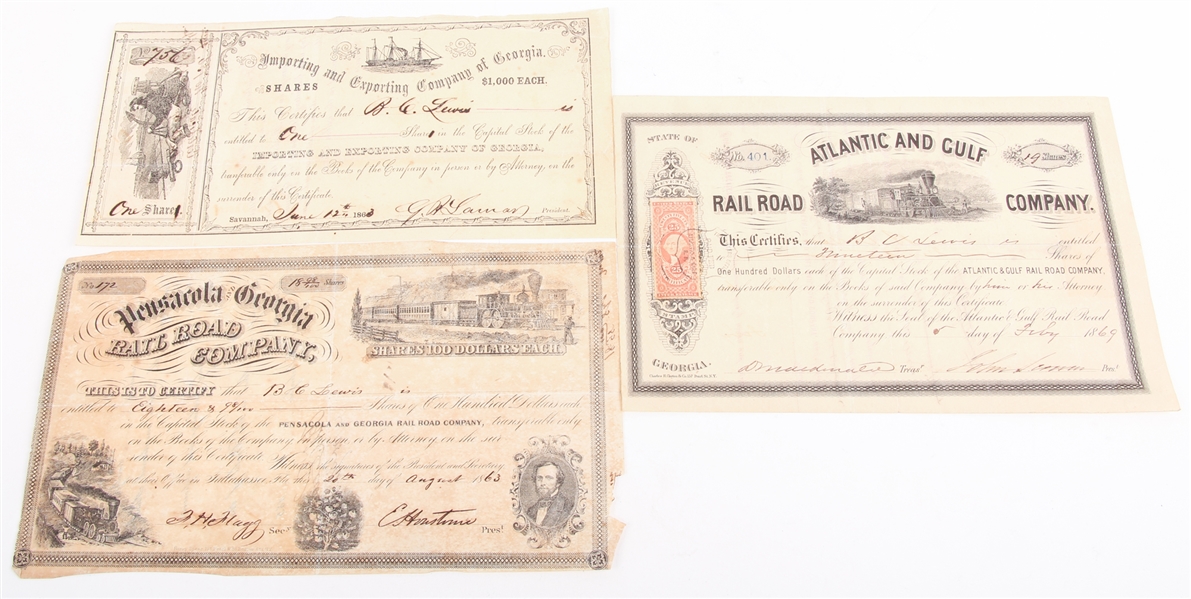 No 756
Importing and Exporting Company of Georgia.
SHARES $1,000 EACH.
This Certifies that B. C. Lewis is
entitled to One Share in the Capital Stock of the
IMPORTING AND EXPORTING COMPANY OF GEORGIA,
transferable only on the Books of the Company in person or by Attorney, on the
surrender of this Certificate.
One Share.
Savannah, June 12th 1863 G B Lamar President.
STATE OF
No. 401
ATLANTIC AND GULF
19 Shares
RAIL ROAD COMPANY.
This Certifies, that B C Lewis is entitled
to Nineteen Shares of
One Hundred Dollars each of the Capital Stock of the ATLANTIC & GULF RAIL ROAD COMPANY,
transferable only on the Books of said Company by him or his Attorney
on the surrender of this Certificate
Witness the Seal of the Atlantic & Gulf Rail Road
Company this 8 day of Feby 1869
GEORGIA.
Treasr. John Screven Prest.
No. 172
18 98/100 Shares
Pensacola and Georgia
RAIL ROAD
COMPANY,
SHARES 100 DOLLARS EACH.
THIS IS TO CERTIFY that B C Lewis is
entitled to Eighteen & 98/100 Shares of One Hundred Dollars each
in the Capital Stock of the PENSACOLA AND GEORGIA RAIL ROAD COMPANY, transferable only
on the Books of the Company in person or by Attorney, on the sur
render of this Certificate. Witness the signatures of the President and Secretary
at their Office in Tallahassee Fla this 20th day of August 1863
F. H. Flagg Secy E Houstoun Prest.